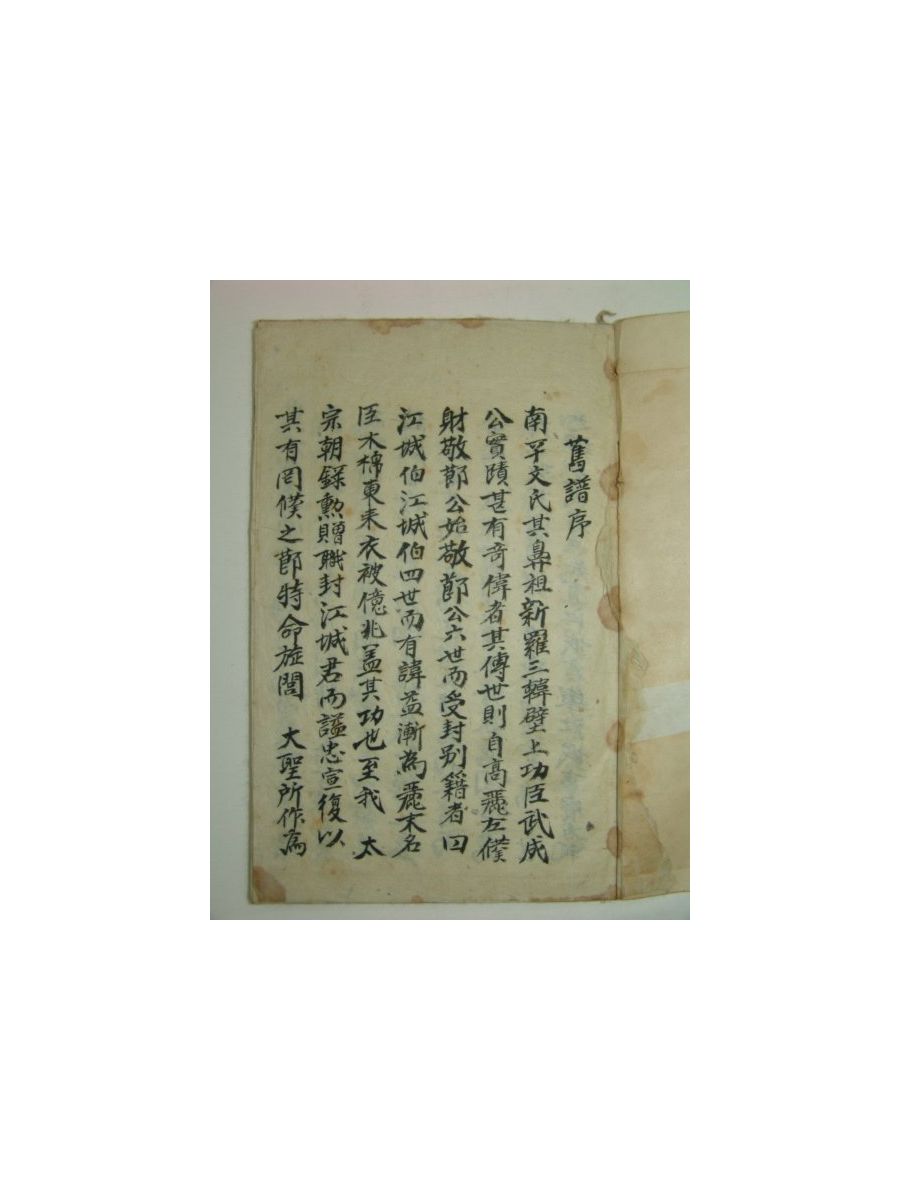 舊譜序
南平文氏其鼻祖新羅三韓壁上功臣武成
公實蹟甚有奇偉者其傳世則自高麗左僕
財敬節公始敬節公六世而受封別籍者曰
江城伯江城伯四世而有諱益漸爲麗末名
臣木棉東来衣被億兆盖其功也至我 太
宗朝錄勲贈職封江城君而謚忠宣復以
其有罔僕之節特命旌閭 大聖所作爲